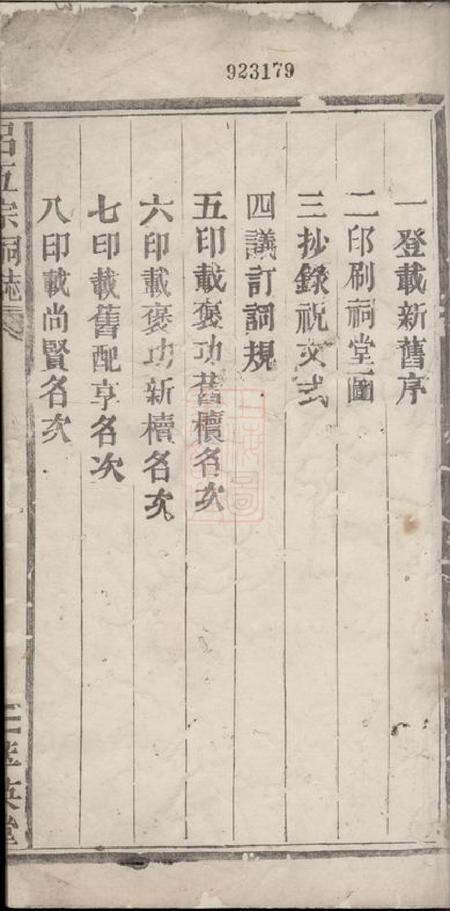 923179
一登載新舊序
二印刷祠堂圖
三抄錄祝文式
四議訂詞規
五印載褒功舊櫝名次
六印載褒功新櫝名次
七印載舊配享名次
八印載尚賢名次
呂五宗祠誌